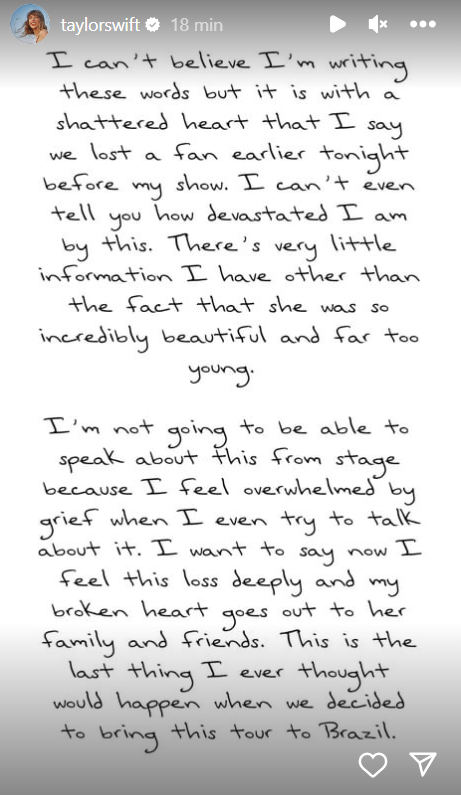 taylorswift 18 min
I can't believe I'm writing
these words but it is with a
shattered heart that I say
we lost a fan earlier tonight
before my show. I can't even
tell you how devastated I am
by this. There's very little
information I have other than
the fact that she was so
incredibly beautiful and far too
young.
I'm not going to be able to
speak about this from stage
because I feel overwhelmed by
grief when I even try to talk
about it. I want to say now I
feel this loss deeply and my
broken heart goes out to her
family and friends. This is the
last thing I ever thought
would happen when we decided
to bring this tour to Brazil.